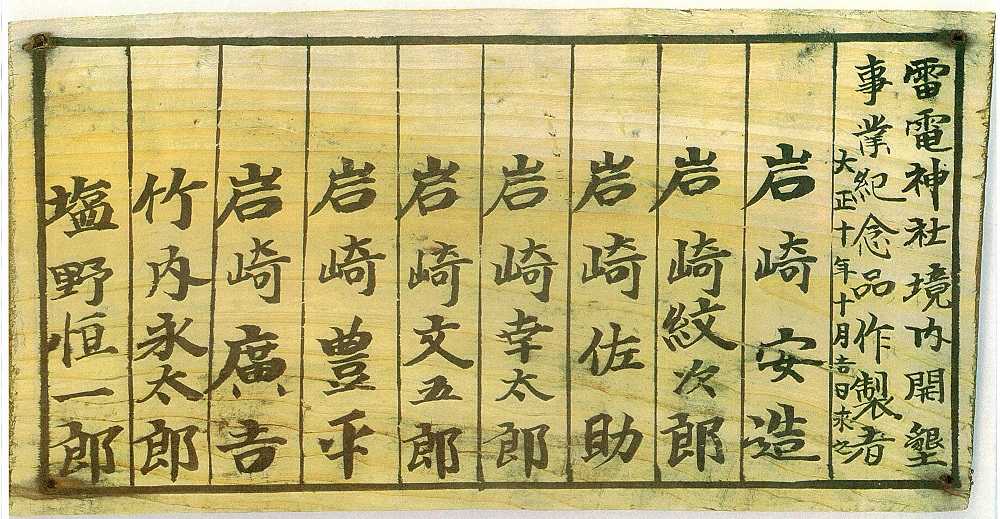 雷電神社境内開墾
事業紀念品作製者
大正十年十月吉日求之
岩崎安造
岩崎紋次郎
岩崎佐助
岩崎幸太郎
岩崎文五郎
岩崎豊平
岩崎廣吉
竹内永太郎
塩野恒一郎